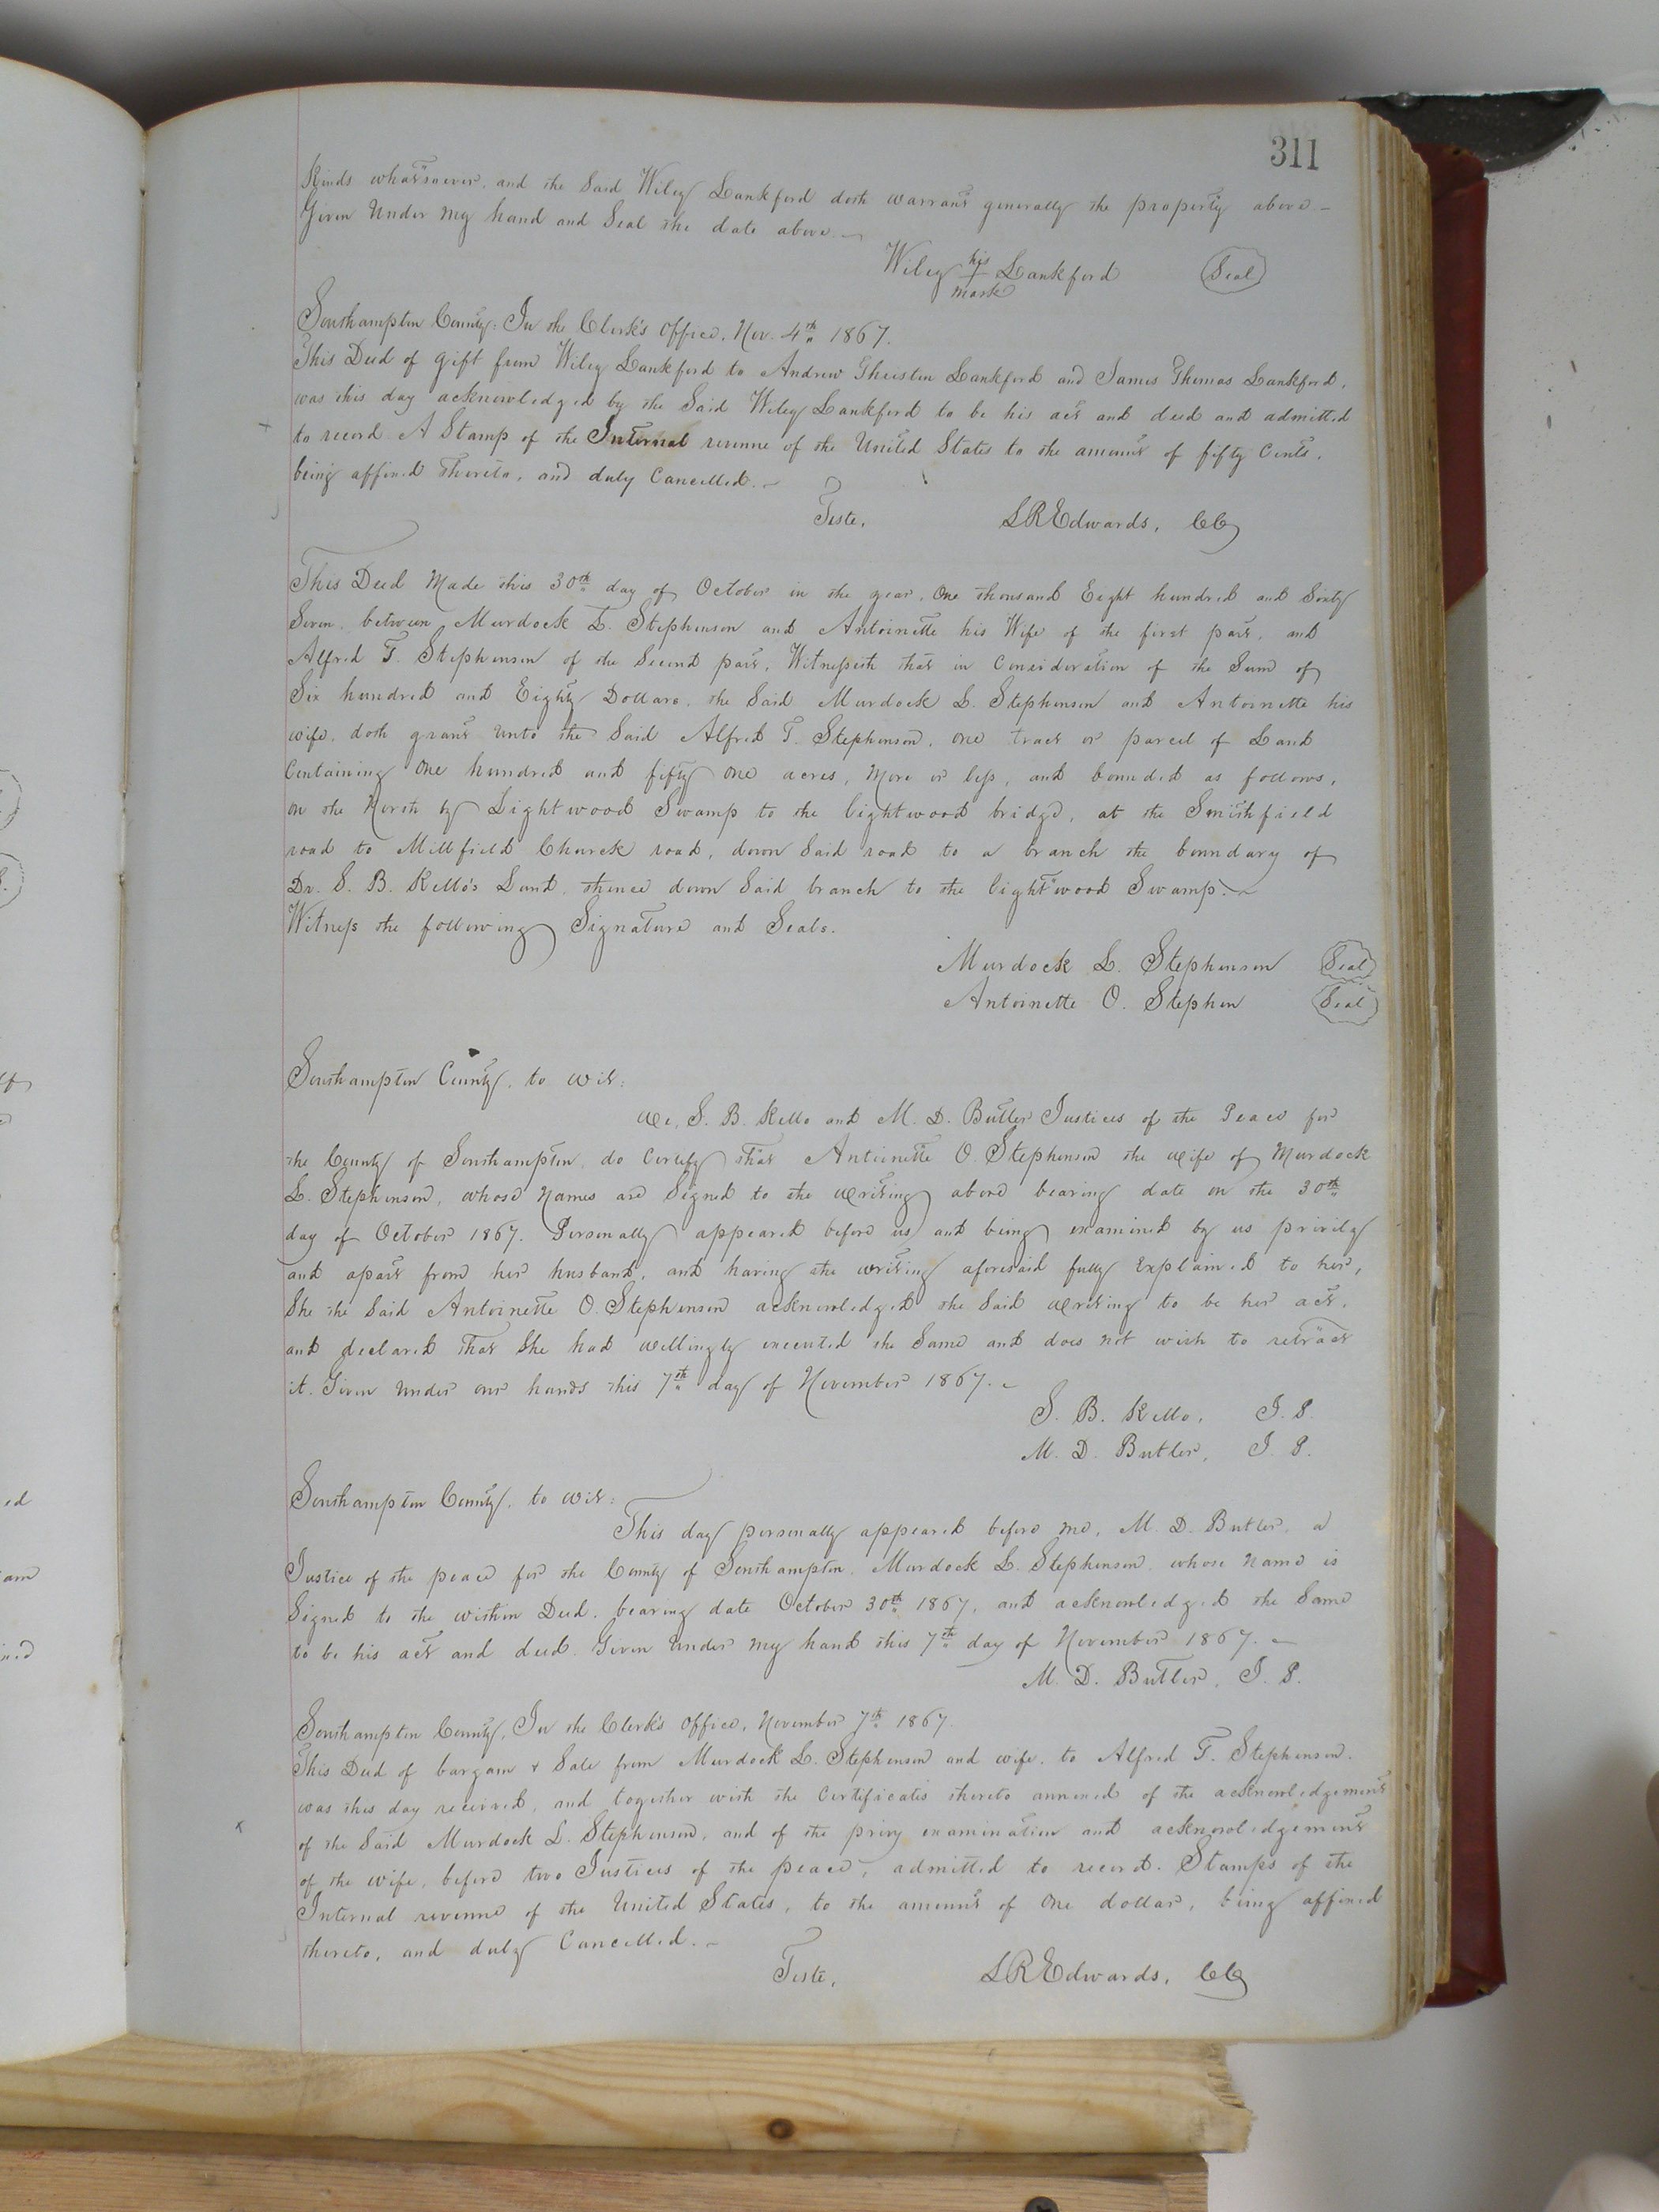 311
Kinds whatsoever, and the Said Wiley Lankford doth warrant generally the property above –
Given Under my hand and Seal the date above. –
Wiley his + mark Lankford (Seal)
Southampton County: In the Clerk's Office, Nov. 4th 1867.
This Deed of gift from Wiley Lankford to Andrew Lankford and James Thomas Lankford,
was this day acknowledged by the Said Wiley Lankford to be his act and deed and admitted
to record. A Stamp of the Internal revenue of the United States to the amount of fifty Cents,
being affixed thereto, and duly Cancelled. –
Teste, LREdwards, CC
This Deed Made this 30th day of October in the year, One thousand Eight hundred and Sixty
Seven, between Murdock L. Stephenson and Antoinette his Wife of the first part, and
Alfred T. Stephenson of the Second part, Witnesseth that in Consideration of the Sum of
Six hundred and Eighty Dollars, the Said Murdock L. Stephenson and Antoinette his
wife, doth grant unto the Said Alfred T. Stephenson, one tract or parcel of Land
Containing One hundred and fifty one acres, More or less, and bounded as follows,
on the North by Lightwood Swamp to the lightwood bridge, at the Smithfield
road to Millfield Church road, down Said road to a branch the boundary of
Dr. S. B. Kello's Land, thence down Said branch to the lightwood Swamp. –
Witness the following Signature and Seals.
Murdock L. Stephenson (Seal)
Antoinette O. Stephen (Seal)
Southampton County, to wit:
We, S. B. Kello and M. D. Butler Justices of the Peace for
the County of Southampton, do Certify that Antoinette O. Stephenson the wife of Murdock
L. Stephenson, whose Names are Signed to the writing above bearing date on the 30th
day of October 1867. Personally appeared before us and being examined by us privily
and apart from her husband, and having the writing aforesaid fully Explained to her,
She the Said Antoinette O. Stephenson acknowledged the Said writing to be her act,
and declared that She had willingly executed the Same and does not wish to retract
it. Given under our hands this 7th day of November 1867. –
S. B. Kello, J. P.
M. D. Butler, J. P.
Southampton County, to wit:
This day personally appeared before me, M. D. Butler, a
Justice of the peace for the County of Southampton, Murdock L. Stephenson, whose Name is
Signed to the within Deed, bearing date October 30th 1867, and acknowledged the Same
to be his act and deed. Given Under my hand this 7th day of November 1867. –
M. D. Butler, J. P.
Southampton County, In the Clerk's Office, November 7th 1867.
This Deed of bargain & Sale from Murdock L. Stephenson and wife, to Alfred T. Stephenson.
was this day received, and together with the Certificates thereto annexed of the acknowledgement
of the Said Murdock L. Stephenson, and of the privy examination and acknowledgement
of the wife, before two Justices of the peace, admitted to record. Stamps of the
Internal revenue of the United States, to the amount of One dollar, being affixed
thereto, and duly Cancelled. –
Teste, LREdwards, CC